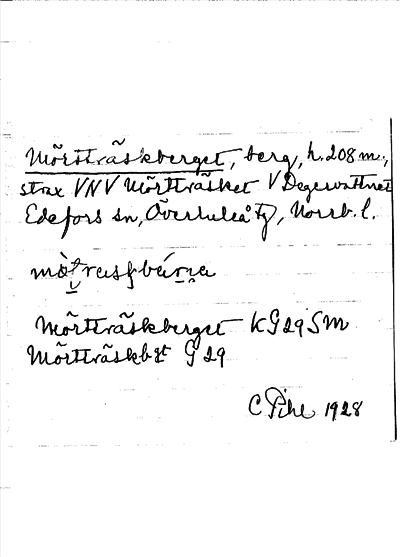 Mörtträskberget, berg, h. 208 m.,
strax VNV Mörtträsket V Degervattnet
Edefors sn, Överluleå tg, Norrb. l.
Mörtträskberget KG29SM
Mörtträskbgt G29
C Pihl 1928